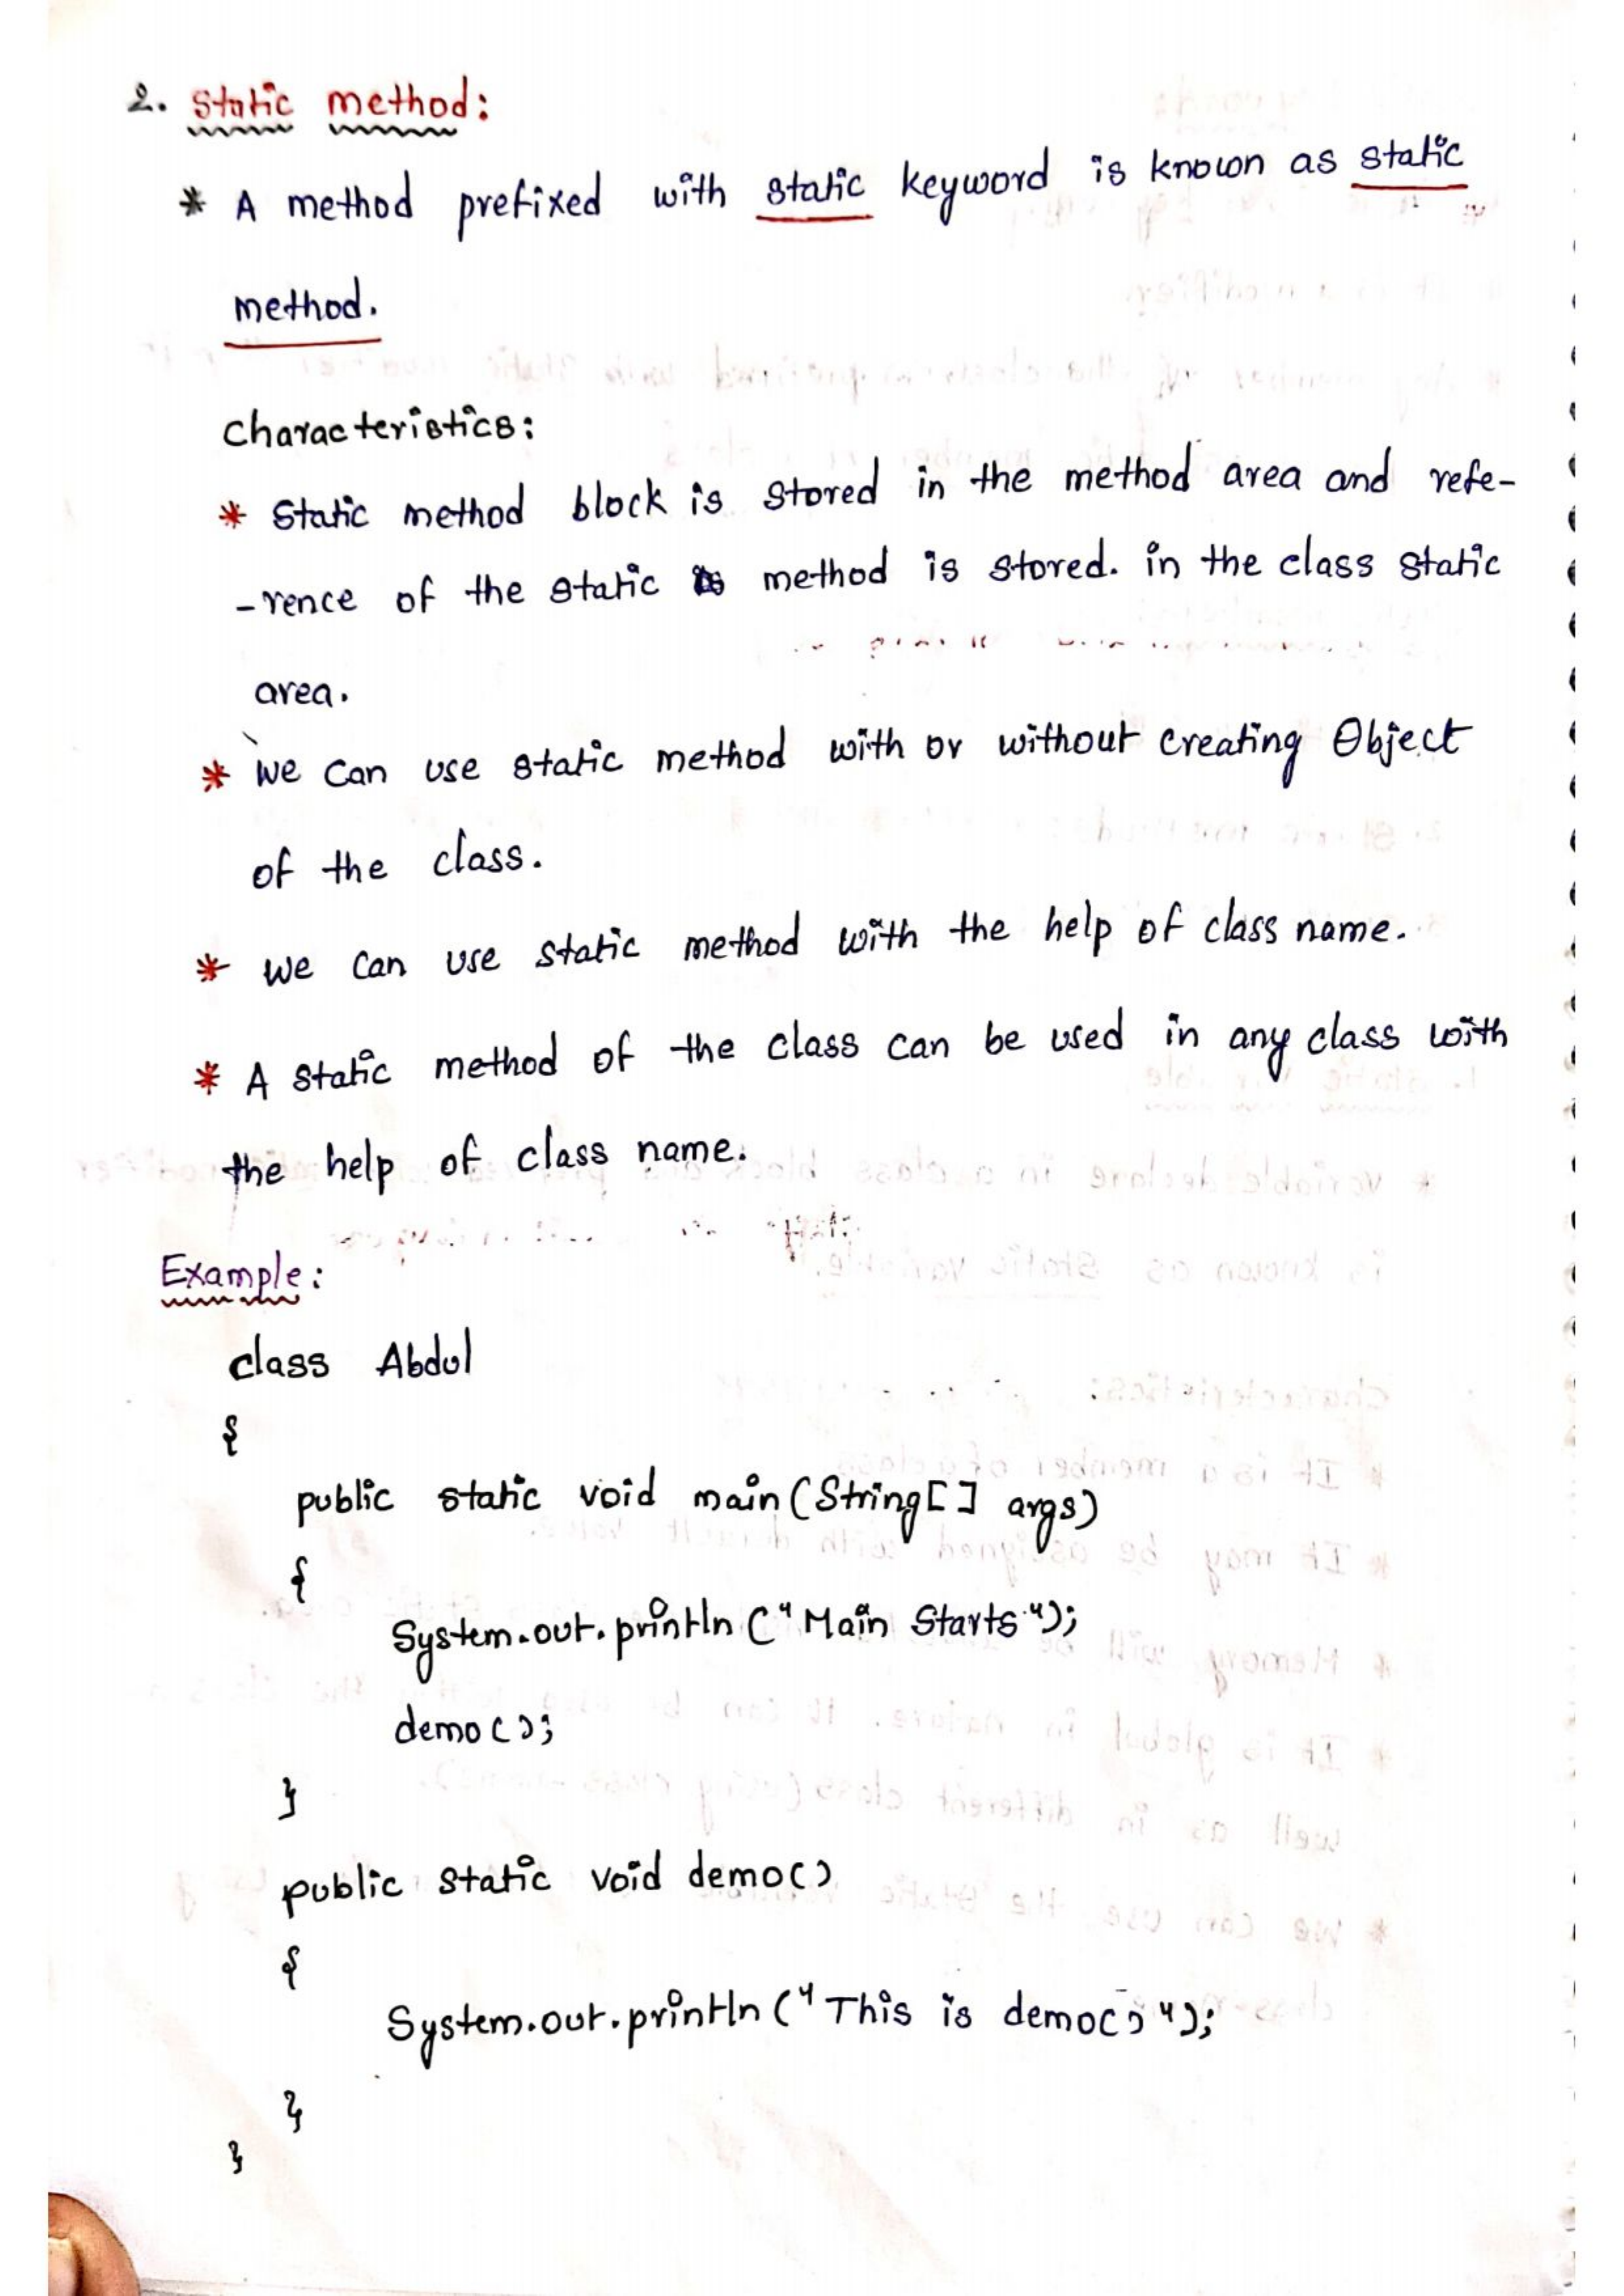 2. Static method:
* A method prefixed with static keyword is known as static
method.
Characteristics:
* Static method block is stored in the method area and refe-
-rence of the static method is stored. in the class static
area.
* we can use static method with or without creating Object
of the class.
* we can use static method with the help of class name.
* A static method of the class can be used in any class with
the help of class name.
Example:
class Abdul
{
public static void main(String[] args)
{
System.out.println("Main Starts");
demo();
}
public static void demo()
{
System.out.println("This is demo()");
}
}